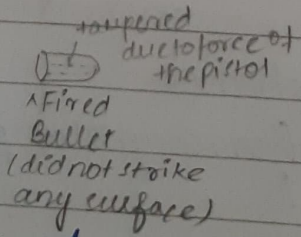 tampered
due to force of
the pistol
^ Fired
Bullet
(did not strike
any surface)